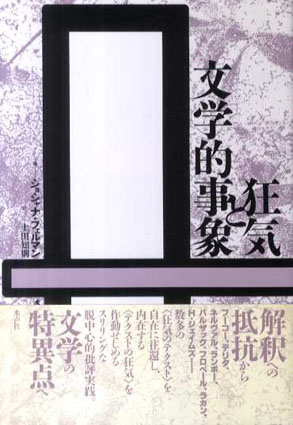 狂気
と
文学的事象
ショシャナ・フェルマン
土田知則
解釈への
抵抗から
フーコー、デリダ、
ネルヴァル、ランボー、
バルザック、フロベール、ラカン、
H・ジェイムズ——
数多の
〈狂気のテクスト〉を
自在に往還し、
内在する
〈テクストの狂気〉を
作動させる
スリリングな
脱中心的批評実践。
文学の
特異点へ
水声社